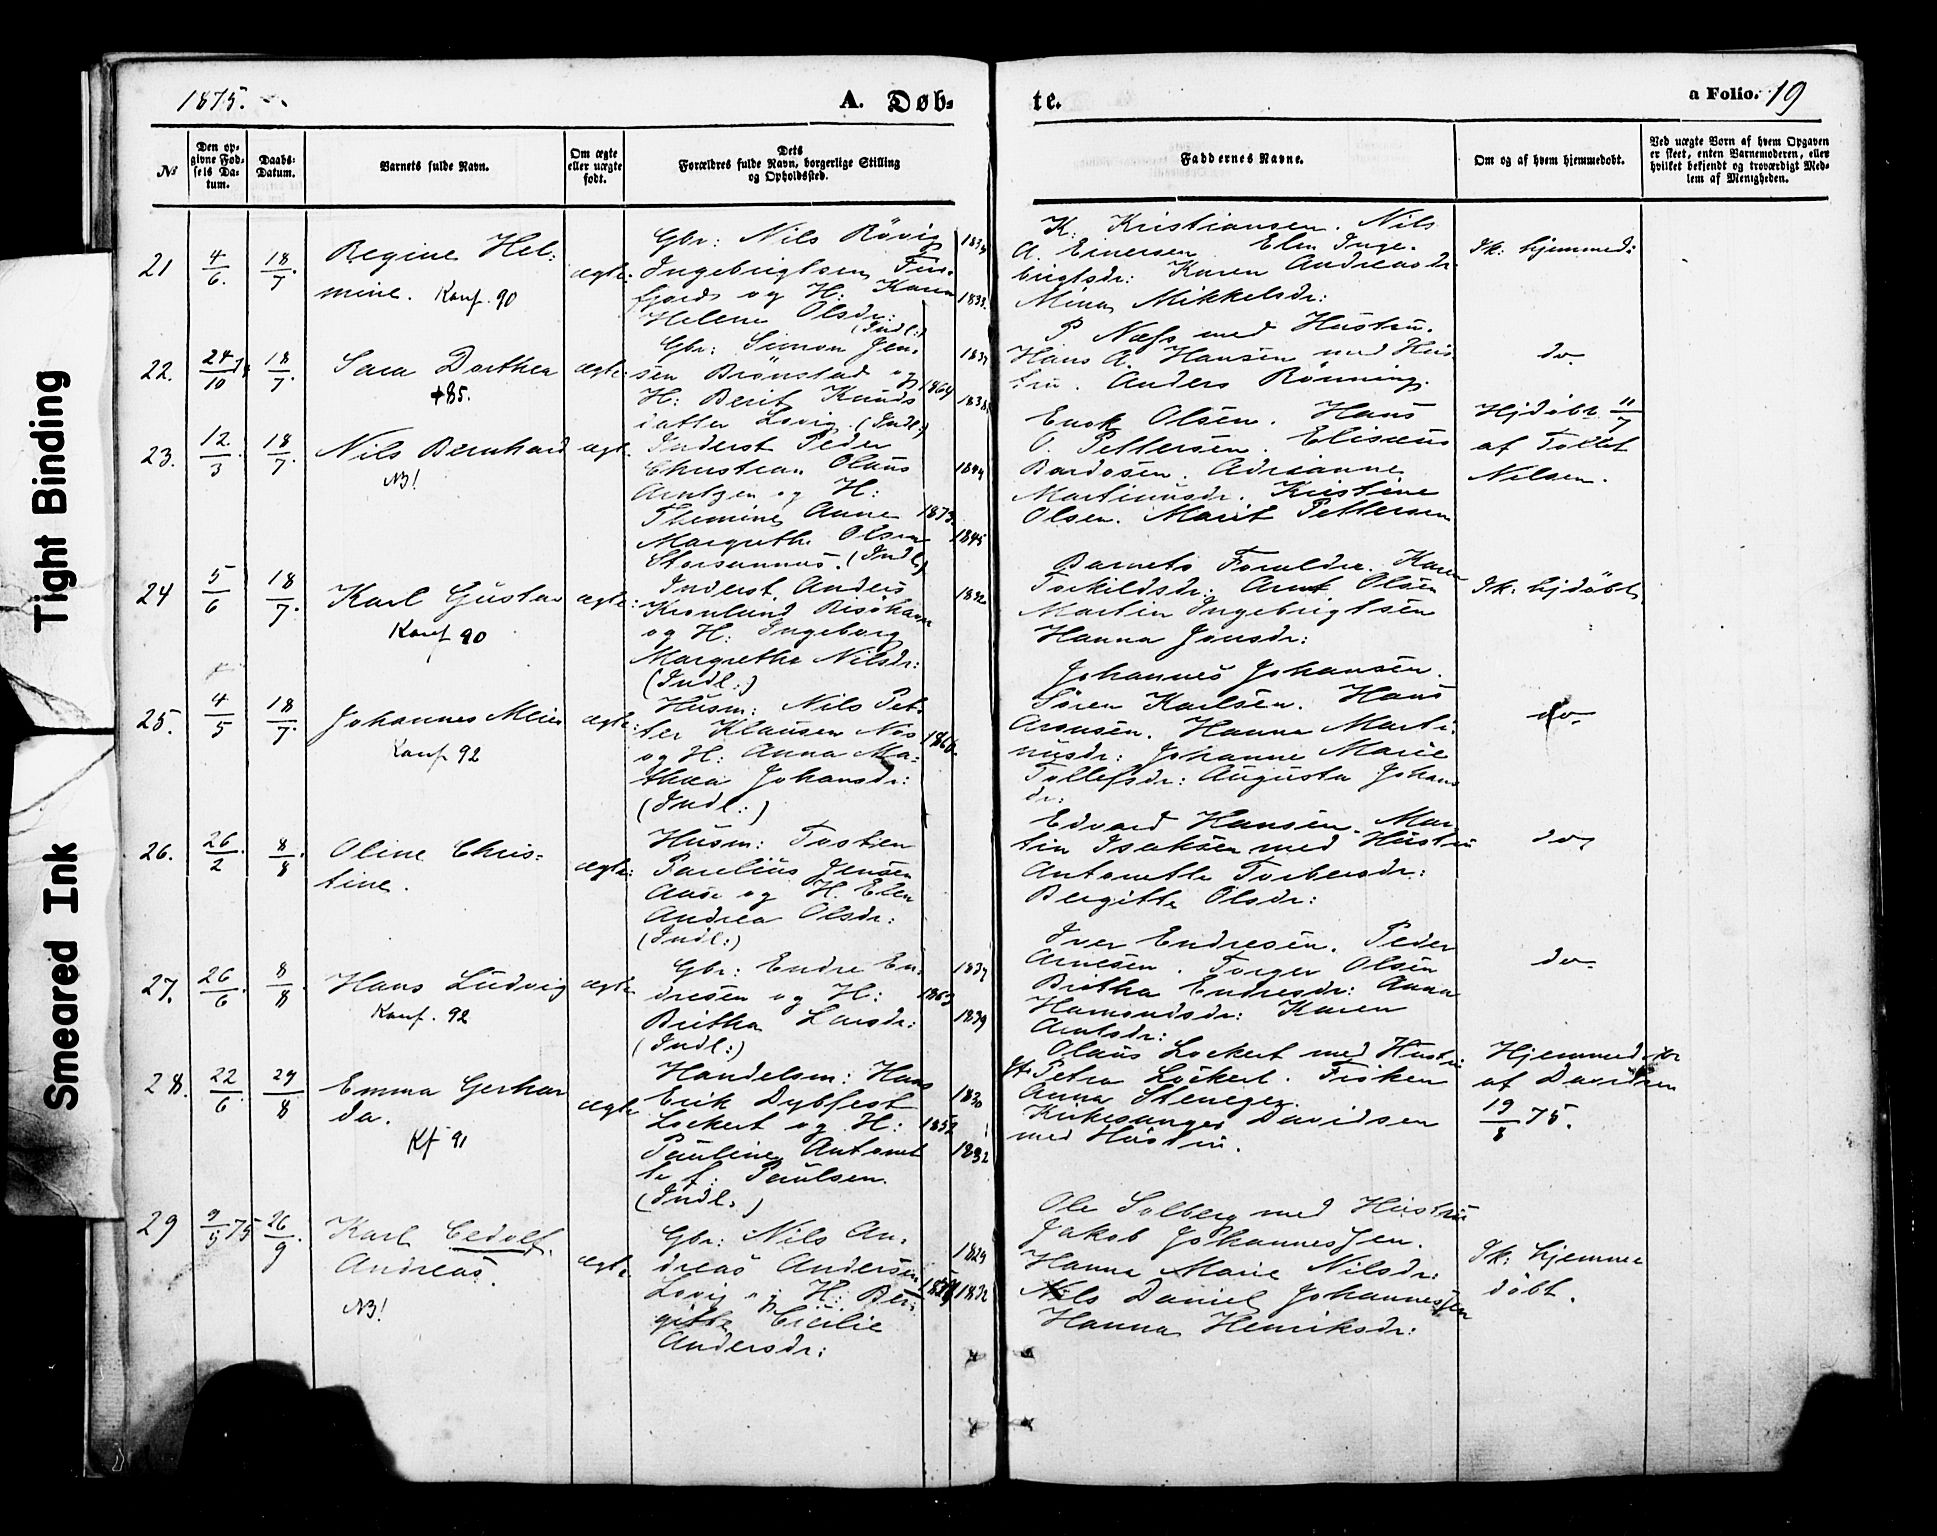 Tight Binding
Smeared Ink
1875.
A. Døb-
te.
a Folio. 19
No
Den op-
givne Fød-
sels Da-
tum.
Daabs-
Datum.
Barnets fulde Navn.
Om ægte
eller uægte
født.
Dets
Forældres fulde Navn, borgerlige Stilling
og Opholdssted.
Faddernes Navne.
Om og af hvem hjemmedøbt.
Ved uægte Børn af hvem Opgaven
er skeet, enten Barnemoderen, eller
hvilket bekjendt og troværdigt Med-
lem af Menigheden.
21
4/6.
18/7.
Regine Hel-
mine. Konf. 90
ægte.
Gbr: Nils Rövig
Ingebrigtsen
fjord og H: Karen
Helene Olsdr:
(Indl:)
1833.
K: Kristiansen. Nils
A. Einersen Elen Inge-
brigtsdr: Karen Andreasdr.
Mina Mikkelsdr:
Ik: hjemmed:
22.
24/10
18/7.
Sara Dorthea
+85.
ægte.
Gbr: Simon Jen-
sen Brönstad og
H: Berit Knuds
datter Lovig. (Indl.)
1864
P Næss med Hustru.
Hans A. Hansen med Hus
tru. Anders Rönning.
do
23.
12/3
18/7.
Nils Bernhard
NB!
ægt.
Inderst Peder
Christian Olaus
Arntzen og H:
Themine Anne
Margrethe Olsen
Storsannes. (Indl.)
1873.
1844
1845
Enok Olsen. Hans
O. Pettersen. Elisæus
Bardosen. Adrianne
Martinusdr. Kristine
Olsen. Marit Pettersen
Hjdöbt 11/7
af Tollef
Nilsen.
24
5/6
18/7.
Karl Gustav
Konf 90
ægte:
Inderst Anders
Kronlund
og H: Ingeborg
Margrethe Nilsdr:
(Indl:)
Barnets Forældre. Karen
Torkildsdr. Arnt Olsen
Martin Ingebrigtsen
Hanna Jonsdr:
Ik: hjdöbt.
25.
4/5
18/7.
Johannes Meier
Konf 92
ægte:
Husm: Nils Pet-
ter Klausen Nös
og H: Anna Ma-
thea Johansdr:
(Indl:)
1866.
Johannes Johansen.
Sören Karlsen. Hans
Aronsen. Hanna Marti-
nusdr: Johanne Marie
Tollefsdr: Augusta Johans
dr:
do.
26.
26/2
8/8
Oline Chris-
tine.
ægte:
Husm: Tosten
Parelius Jensen
Aase og H. Elen
Andrea Olsdr:
(Indl:)
Edvard Hansen. Mar
tin Isaksen med Hustru
Antonette Torbersdr:
Bergitte Olsdr:
do
27.
26/6
8/8
Hans Ludvig
Konf. 92
ægte
Gbr: Endre En-
dresen og H:
Britha Larsdr:
(Indl:)
1863
1839
Iver Endresen. Peder
Arnesen. Torger Olsen
Britha Endresdr: Anna
Hamondsdr: Karen
Arntsdr:
do.
28.
22/6
29/8
Emma Gerhar
da.
Kf 91
ægte
Handelsm: Hans
Erik Dybfest
Lockert og H:
Pauline Antonet
te f. Paulsen.
(Indl.)
1830
1832
Olaus Lockert med Hustr:
Petra Lockert. Fröken
Anna Steneger.
Kirkesanger Davidsen
med Hustru.
Hjemmed
af Davidsen
19/8 75.
29
9/5 75
26/9
Karl Cedolf
Andreas.
NB!
ægte
Gbr: Nils An-
dreas Andersen
Lovig og H: Ber-
gitte Cicilie
Andersdr:
1829
1832
Ole Solberg med Hustru
Jakob Johannessen.
Hanna Marie Nilsdr:
Nils Daniel Johannessen
Hanna Henriksdr:
Ik: hjemme
döbt.